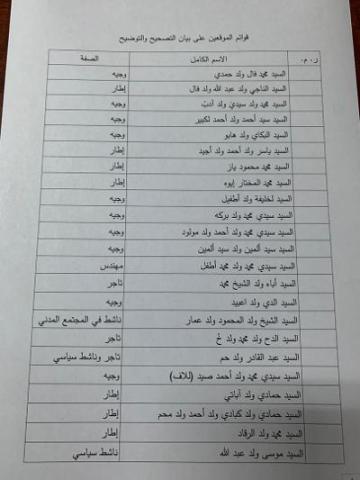 قوائم الموقعين على بيان التصحيح والتوضيح
ر.م. الاسم الكامل الصفة
السيد محمد فال ولد حمدي وجيه
السيد الناجي ولد عبد الله ولد فال إطار
السيد محمد ولد سيدي ولد أدبّ وجيه
السيد سيد أحمد ولد أحمد لكبير وجيه
السيد البكاي ولد هابو وجيه
السيد ياسر ولد أحمد ولد أجيد إطار
السيد محمد محمود ياز إطار
السيد محمد المختار إيوه إطار
السيد لخليفة ولد أطفيل وجيه
السيد سيدي محمد ولد بركه وجيه
السيد سيدي محمد ولد أحمد ولد مولود وجيه
السيد سيد ألمين ولد سيد ألمين وجيه
السيد سيدي محمد ولد محمد أطفل مهندس
السيد أباه ولد الشيخ محمد تاجر
السيد الدي ولد اعبيد وجيه
السيد الشيخ ولد المحمود ولد عمار ناشط في المجتمع المدني
السيد الدح ولد محمد ولد تاجر
السيد عبد القادر ولد حم تاجر وناشط سياسي
السيد سيدي محمد ولد أحمد صيد (للاف) وجيه
السيد حمادي ولد آباتي إطار
السيد حمادي ولد كبادي ولد أحمد ولد محم إطار
السيد محمد ولد الرقاد إطار
السيد موسى ولد عبد الله ناشط سياسي